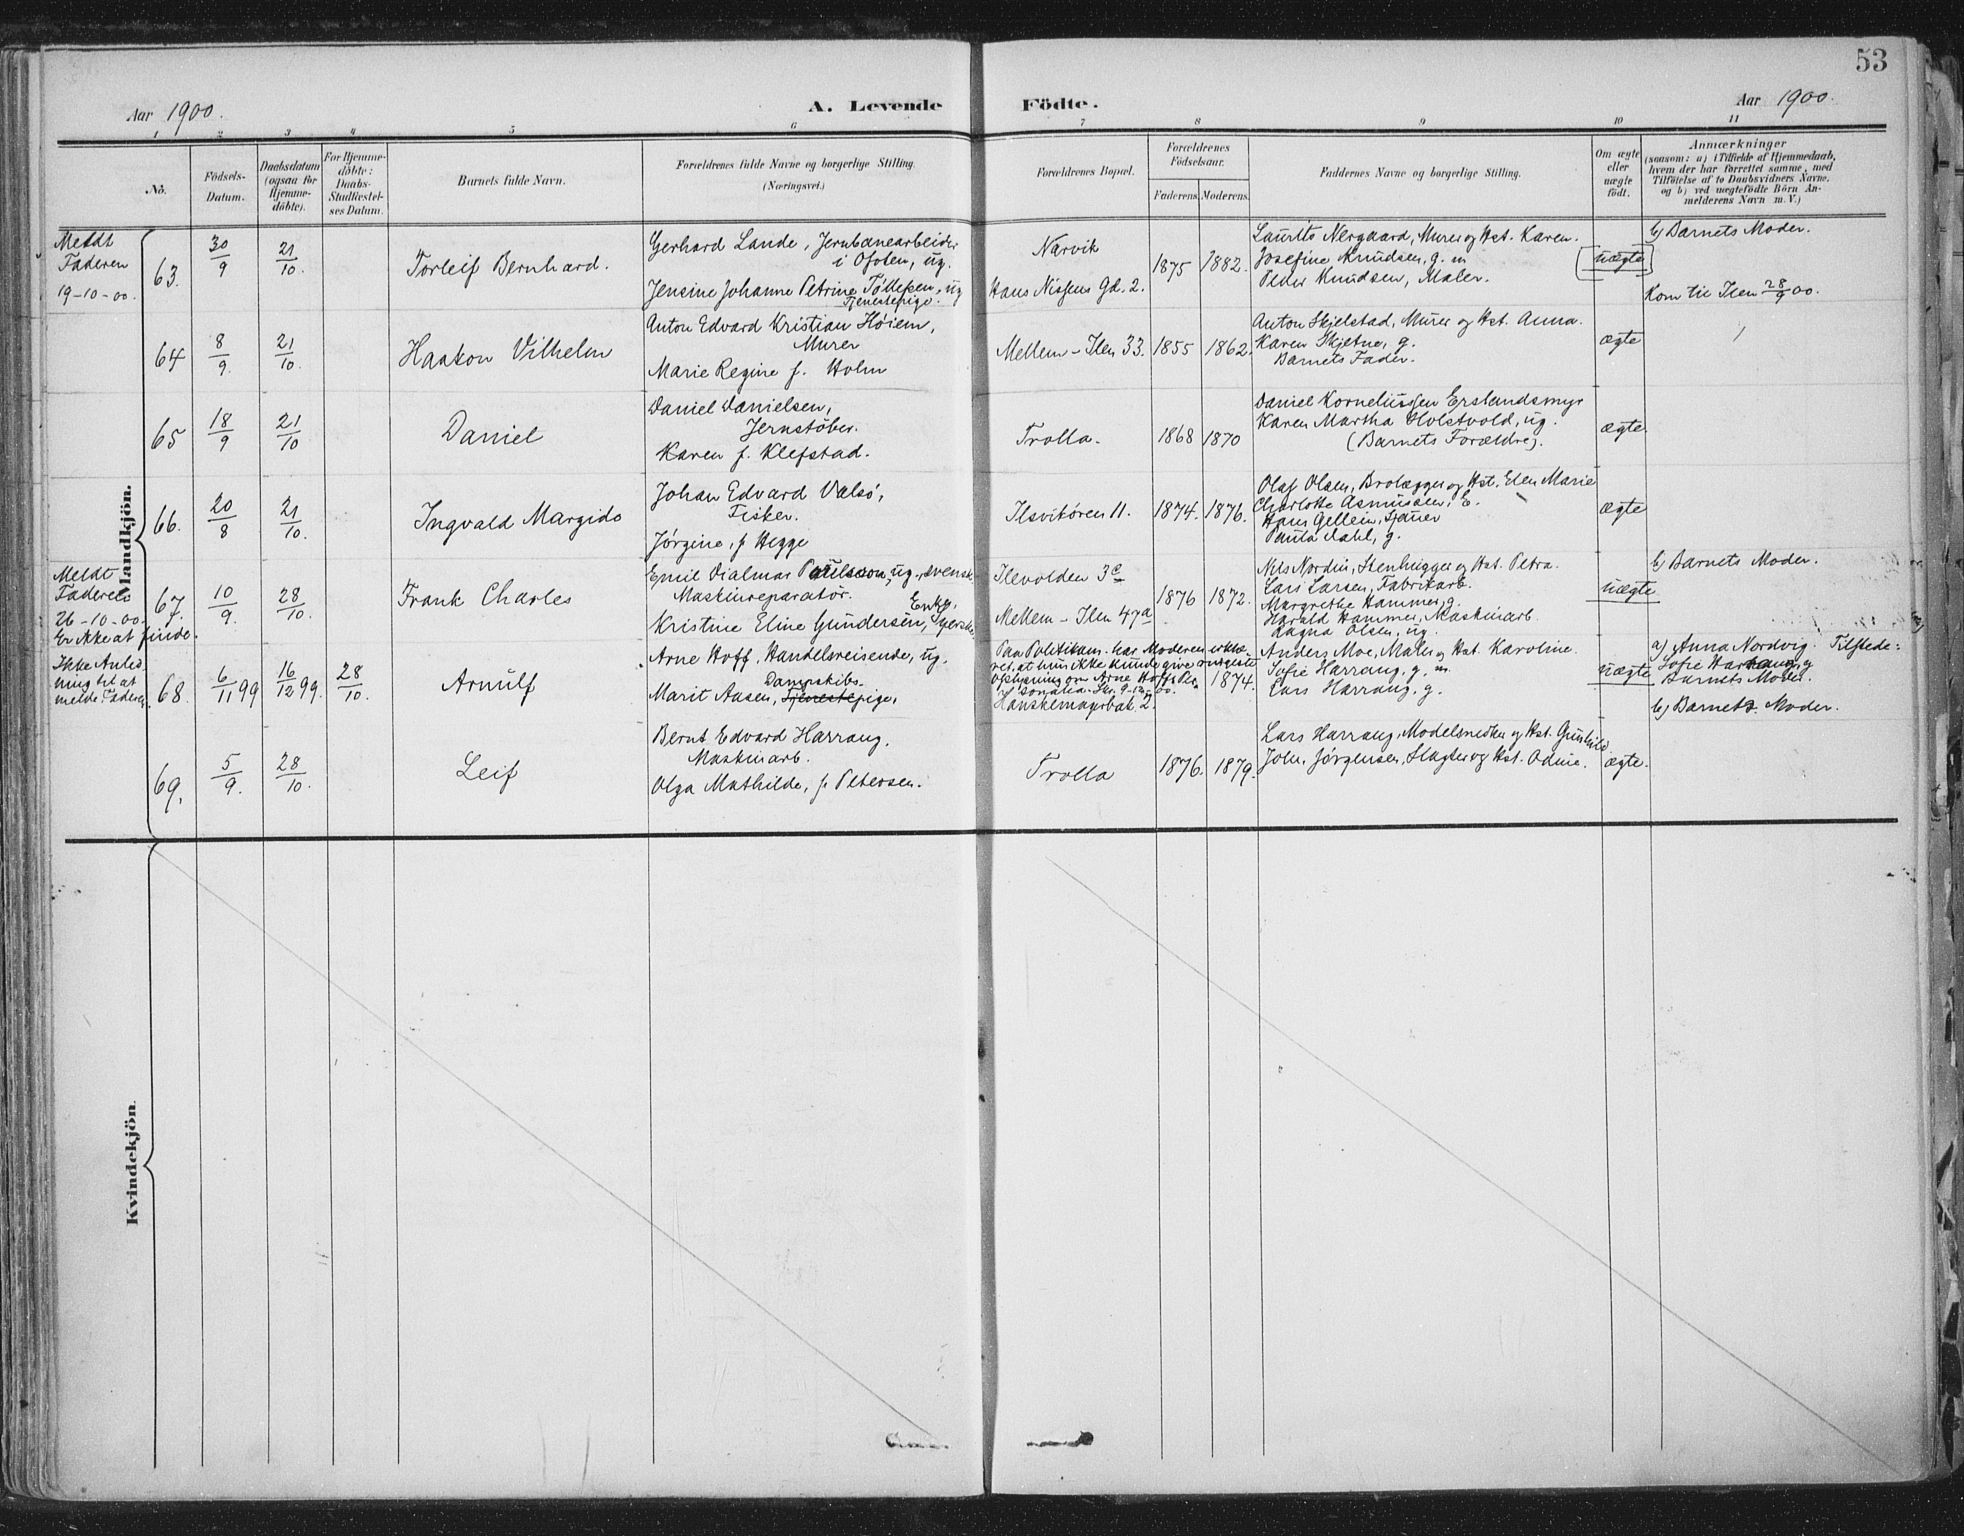 53
Aar 1900.
A. Levende Födte.
Aar 1900.
1 2 3 4 5 6 7 8 9 10 11
No.
Födsels-
Datum.
Daabsdatum
(ogsaa for
Hjemme-
döbte).
For Hjemme-
döbte:
Daabs-
Stadfæstel-
ses Datum.
Barnets fulde Navn.
Forældrenes fulde Navne og borgerlige Stilling.
(Næringsvei.)
Forældrenes Bopæl.
Forældrenes
Födselsaar.
Faderens. Moderens.
Faddernes Navne og borgerlige Stilling.
Om ægte
eller
uægte
født.
Anmærkninger
(saasom: a) i Tilfælde af Hjemmedaab,
hvem der har forrettet samme, med
Tilføielse af to Daabsvidners Navne.
og b) ved uegtefödte Börn An-
melderens Navn m. V.)
Mandkjön.
Meldt
Faderen
19-10-00.
63.
30/9
21/10.
Torleif Bernhard.
Gerhard Lande, Jernbanearbeider
i Ofoten, ug.
Jensine Johanne Petrine Tøllefsen, ug
Tjenestepige.
Narvik
Hans Nissens Gd. 2.
1875
1882.
Laurits Nergaard, Murer og Hst. Karen.
Josefine Knudsen, g. m
Peder Knudsen, Maler.
uægte
b) Barnets Moder.
Kom til Ilen 28/9 00.
64
8/9.
21/10.
Haakon Vilhelm
Anton Edvard Kristian Høiem,
Murer
Marie Regine f. Holm
Mellem-Ilen 33.
1855
1862.
Anton Skjelstad, Murer og Hst. Anna.
Karen Skjetne, g.
Barnets Fader.
ægte
65
18/9
21/10
Daniel
Daniel Danielsen,
Jernstøber.
Karen f. Klefstad.
Trolla.
1868
1870
Daniel Korneliussen Erslandsmyr
Karen Martha Holstvold, ug.
(Barnets Forældre).
ægte.
66.
20/8
21/10.
Ingvald Margido
Johan Edvard Valsö,
Fisker.
Jørgine, f Hegge
Ilsvikøren 11.
1874.
1876.
Olaf Olsen, Brolægger og Hst. Elen Marie
Charlotte Asmussen, E.
Hans Gellein,
Paula Dahl, g.
ægte
Meldt
Faderen
26-10-00.
Er ikke at finde.
67.
10/9.
28/10.
Frank Charles
Emil Dialmar Paulsson, ug., svensk
Maskinreparatør.
Kristine Eline Gundersen, Enke,
Ilevolden 3c
Mellem-Ilen 47a
1876
1872.
Nils Nordin, Stenhugger og Hst. Petra.
Lars Larsen, Fabrikarb.
Margrethe Hammer, g.
Harald Hammer, Maskinarb.
Ragna Olsen, ug.
uægte
b) Barnets Moder.
Ikke Anled
ning til at
melde Faderen.
68.
6/11 99
16/12 99.
28/10.
Arnulf
Arne Hoff, Handelsreisende, ug.
Dampskibs-
Marit Aasen, Tjenestepige.
Paa Politikam. har Moderen erklæ-
ret, at hun ikke kunde give nogetsl.
Oplysning om Arne Hoffs Per-
sonalia. Skr. 9-12-00.
Hanskemagerbak. 2.
1874.
Anders Moe, Maler og Hst. Karoline.
Sofie Harrang, g. m.
Lars Harrang, g.
uægte
a) Anna Nordvig. Tilstede:
Sofie Harrang, g
Barnets Moder.
b) Barnets Moder.
69.
5/9.
28/10.
Leif
Bernt Edvard Harrang.
Maskinarb.
Olga Mathilde, f. Petersen.
Trolla
1876.
1879.
Lars Harrang, Modelsnedker og Hst. Gunhild
John Jørgensen, Slagter og Hst. Odine.
ægte.
Kvindekjön.